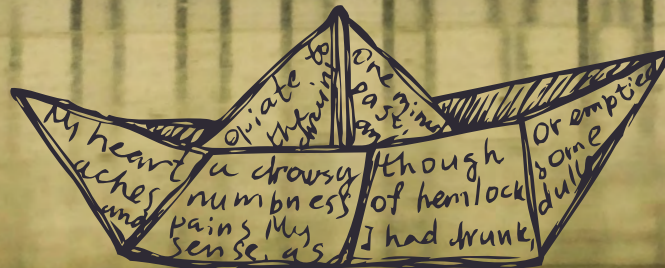 My heart
aches
and
a drowsy
numbness
pains My
sense, as
though
of hemlock
I had drunk,
Or emptied
some
dull
opiate to
the
drains
One minute
past,
and